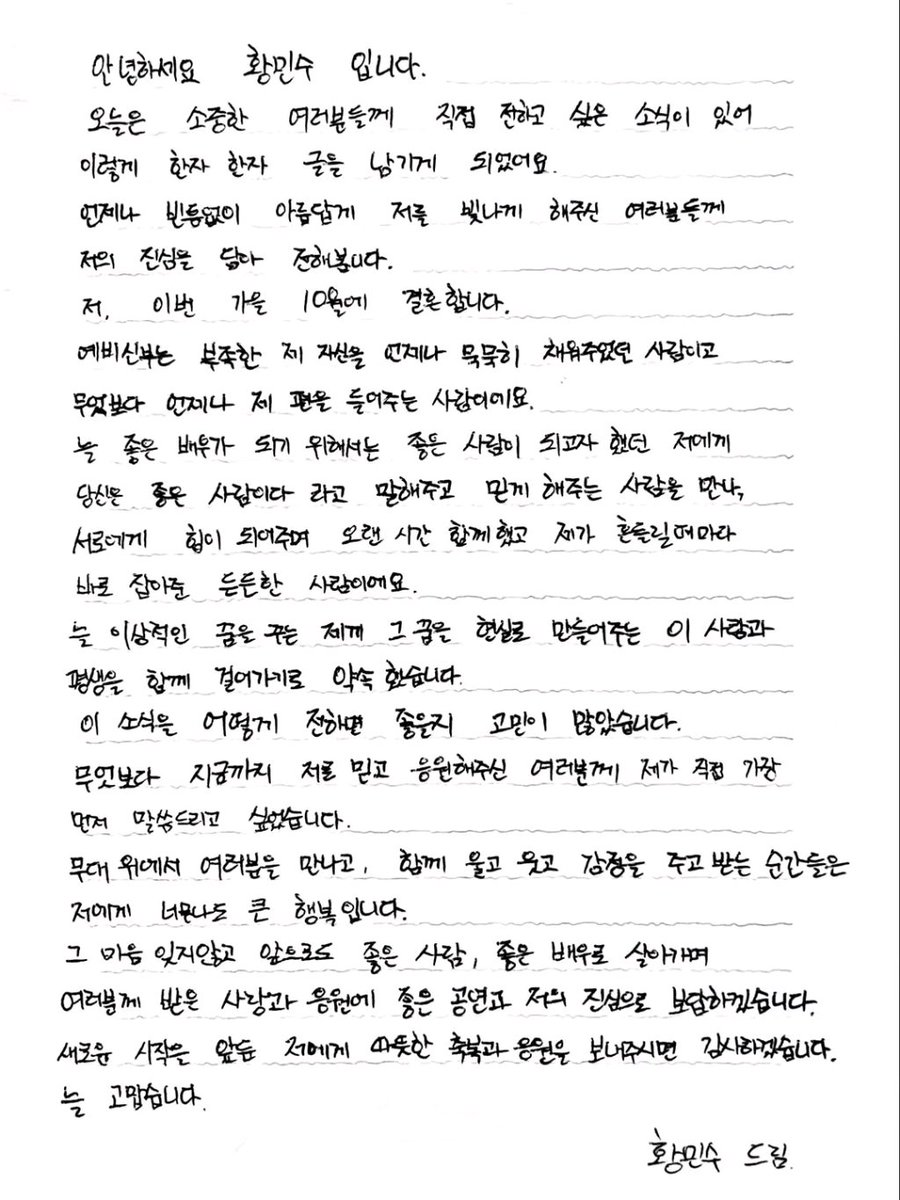 안녕하세요 황민수 입니다.
오늘은 소중한 여러분들께 직접 전하고 싶은 소식이 있어
이렇게 한자 한자 글을 남기게 되었어요.
언제나 빈틈없이 아름답게 저를 빛나게 해주신 여러분들께
저의 진심을 담아 전해봅니다.
저, 이번 가을 10월에 결혼합니다.
예비신부는 부족한 제 자신을 언제나 묵묵히 채워주었던 사람이고
무엇보다 언제나 제 편을 들어주는 사람이에요.
늘 좋은 배우가 되기 위해서는 좋은 사람이 되고자 했던 저에게
당신은 좋은 사람이다 라고 말해주고 믿게 해주는 사람을 만나,
서로에게 힘이 되어주며 오랜 시간 함께했고 제가 흔들릴때마다
바로 잡아준 든든한 사람이에요.
늘 이상적인 꿈을 꾸는 제게 그 꿈을 현실로 만들어주는 이 사람과
평생을 함께 걸어가기로 약속했습니다.
이 소식을 어떻게 전하면 좋을지 고민이 많았습니다.
무엇보다 지금까지 저를 믿고 응원해주신 여러분께 제가 직접 가장
먼저 말씀드리고 싶었습니다.
무대 위에서 여러분을 만나고, 함께 울고 웃고 감정을 주고 받는 순간들은
저에게 너무나도 큰 행복입니다.
그 마음 잊지않고 앞으로도 좋은 사람, 좋은 배우로 살아가며
여러분께 받은 사랑과 응원에 좋은 공연과 저의 진심으로 보답하겠습니다.
새로운 시작을 앞둔 저에게 따뜻한 축복과 응원을 보내주시면 감사하겠습니다.
늘 고맙습니다.
황민수 드림.